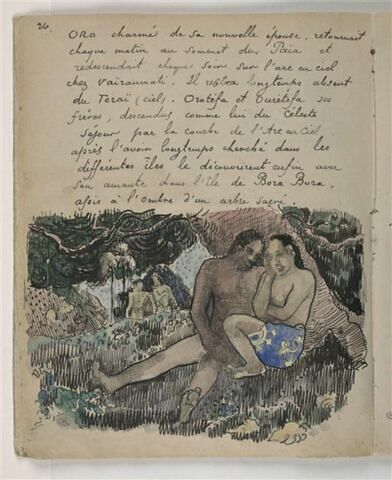 26
ORO charmé de sa nouvelle épouse, retournait
chaque matin au sommet du Païa et
redescendait chaque soir sur l'arc en ciel
chez Vaïraumati. Il resta longtemps absent
du Teraï (ciel). Orotéfa et Ouretéfa ses
frères, descendus comme lui du Céleste
Séjour par la courbe de l'Arc en Ciel
après l'avoir longtemps cherché dans les
différentes îles le découvrirent enfin avec
son amante dans l'île de Bora Bora,
assis à l'ombre d'un arbre sacré.